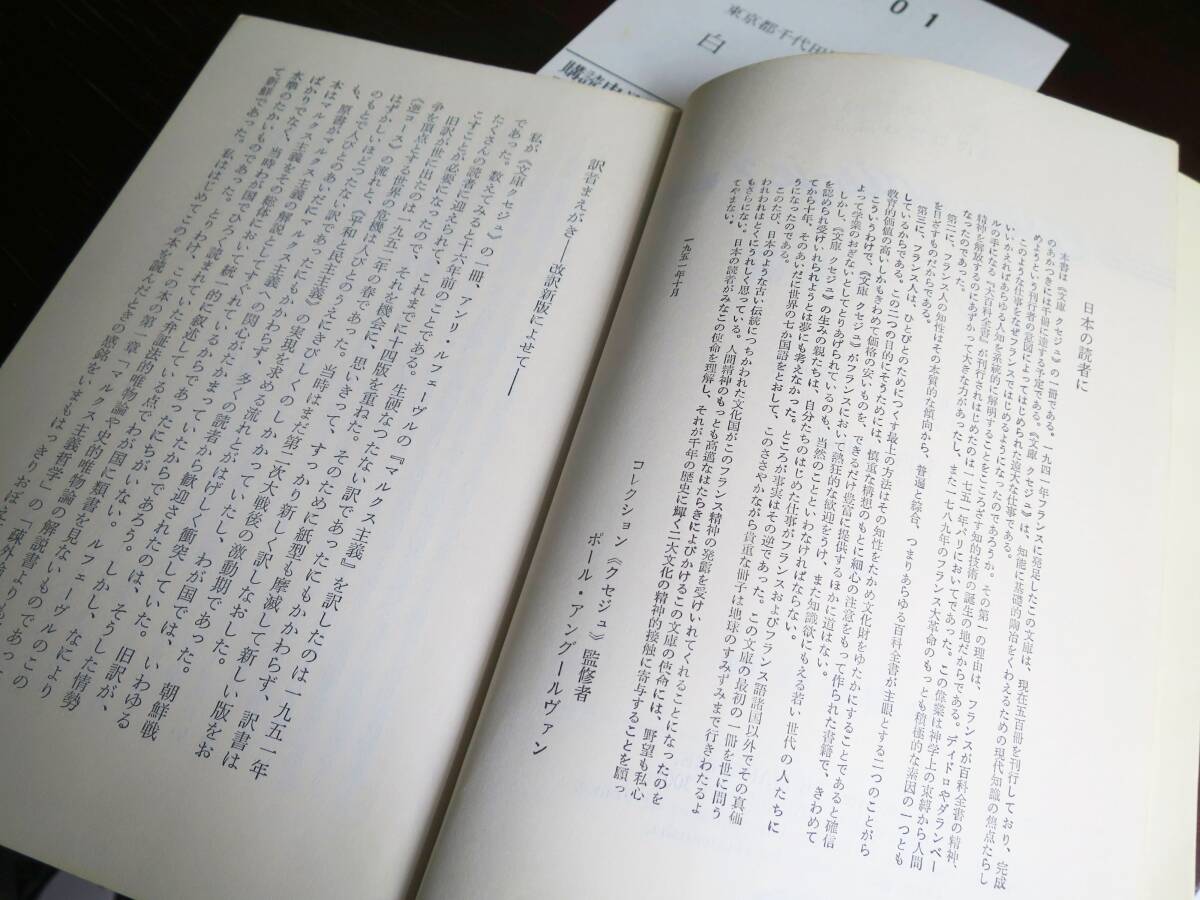 01
東京都千代田
白
購読申込
日本の読者に
本書は《文庫 クセジュ》の一冊である。一九四一年フランスに発足したこの文庫は、現在五百冊を刊行しており、完成
のあかつきには千冊に達する予定である。《文庫 クセジュ》は、知能に基礎的陶冶をくわえるための現代知識の焦点たらし
めようという刊行者の意図によってはじめられた遠大な仕事である。
このような仕事をなぜフランスではじめるようになったのであろうか。その第一の理由は、フランスが百科全書の精神、
いいかえればあらゆる人知を系統的に解明することをこころざす知的技術の誕生の地だからである。ディドロやダランベー
ルの手になる『大百科全書』が刊行されはじめたのは一七五一年パリにおいてであった。この偉業は神学上の束縛から人間
精神を解放するのにあずかって大きな力があったし、また一七八九年のフランス大革命のもっとも積極的な素因の一つとも
なったのであった。
第二に、フランス人の知性はその本質的な傾向から、普遍と綜合、つまりあらゆる百科全書が主眼とする二つのことがら
を目ざすものだからである。
第三に、フランス人は、ひとびとのためにつくす最上の方法はその知性をたかめ文化財をゆたかにすることであると確信
しているからである。この二つの目的にそうためには、慎重な構想のもとに細心の注意をもって作られた書籍で、きわめて
教育的価値の高い、しかもきわめて価格の安いものを、できるだけ豊富に提供するほかに道はない。
こういうわけで、《文庫 クセジュ》がフランスにおいて熱狂的な歓迎をうけ、また知識欲にもえる若い世代の人たちに
よって学業のおぎないとしてとりあげられているのも、当然のことといわなければならない。
しかし、《文庫 クセジュ》の生みの親たちは、自分たちのはじめた仕事がフランスおよびフランス語諸国以外でその真価
を認められ受けいれられようとは夢にも考えなかった。ところが事実はその逆であった。この文庫の最初の一冊を世に問う
てから十年、そのあいだに世界の七か国語をとおして、このささやかながら貴重な冊子は地球のすみずみまで行きわたるよ
うになったのである。
このたび、日本のような古い伝統につちかわれた文化国がこのフランス精神の発露を受けいれてくれることになったのを
われわれはとくにうれしく思っている。人間精神のもっとも高邁なはたらきによびかけるこの文庫の使命には、野望も私心
もさらにない。日本の読者がみなこの使命を理解し、それが千年の歴史に輝く二大文化の精神的接触に寄与することを願っ
てやまない。
一九五一年十月
コレクション《クセジュ》監修者
ポール・アングールヴァン
訳者まえがき――改訳新版によせて――
私が《文庫クセジュ》の一冊、アンリ・ルフェーヴルの『マルクス主義』を訳したのは一九五一年
であった。数えてみると十六年前のことである。生硬なつたない訳であったにもかかわらず、訳書は
たくさんの読者に迎えられて、これまでに十四版を重ねた。そのために紙型も摩滅して新しい版をお
こすことが必要になったので、それを機会に、思いきって、すっかり新しく訳しなおした。
旧訳が世に出たのは一九五二年の春であった。当時はまだ第二次大戦後の激動期であった。朝鮮戦
争を頂点とする世界の危機は人びとのうえにきびしくのしかかっていたし、わが国では、いわゆる
《逆コース》の流れと、《平和と民主主義》の実現を求める流れとがはげしく衝突していた。旧訳が、
はずかしいほどつたない訳であったにもかかわらず、多くの読者から歓迎されたのは、そうした情勢
のもとで人びとのあいだにマルクス主義への関心がたかまっていたからであったにちがいない。しかし、なにより
も、原書がマルクス主義の解説としてすぐれているからであろう。ルフェーヴルのこの
本はマルクス主義をその総体において統一的に叙述している点でわが国に類書を見ないものであった
ばかりでなく、当時わが国でひろく読まれていた弁証法的唯物論や史的唯物論の解説書よりもいっ